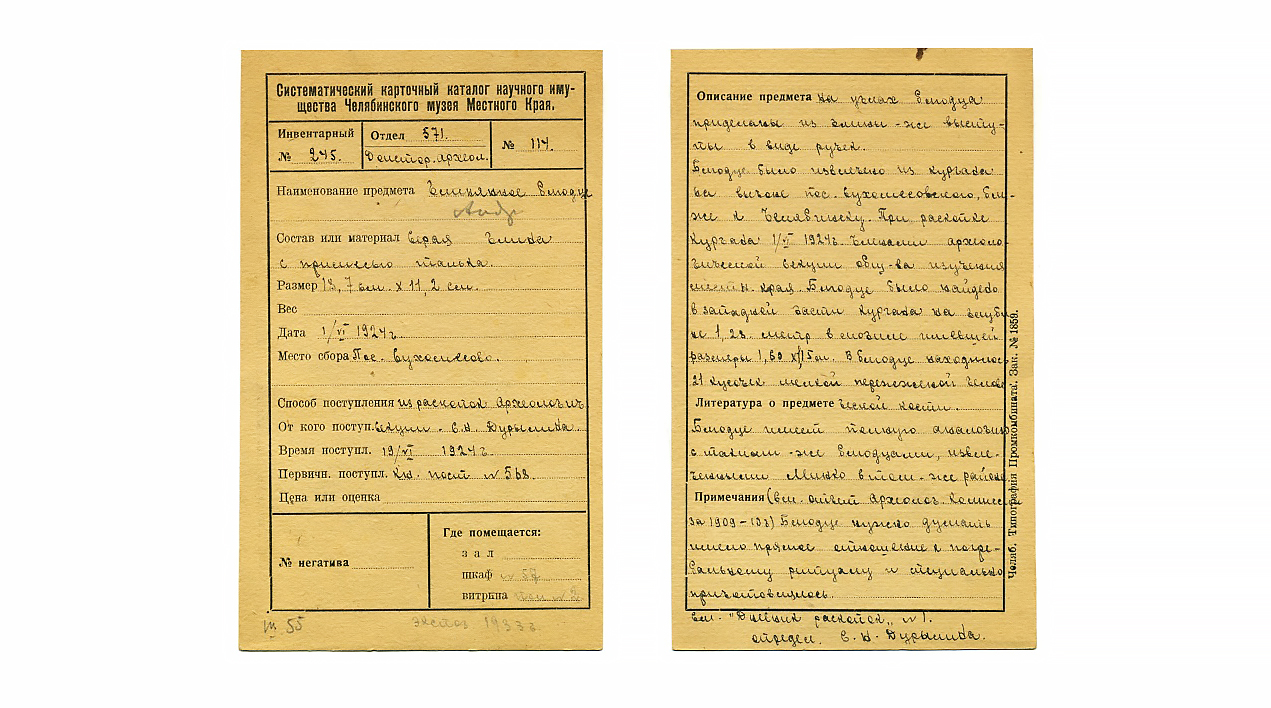 Систематический карточный каталог научного иму-
щества Челябинского музея Местного Края.
Инвентарный
№ 245.
Отдел 571.
Доистор. археол.
№ 114.
Наименование предмета Глиняное блюдце
Состав или материал серая глина
с примесью талька.
Размер 13,7 см. х 11,2 см.
Вес
Дата 1/VI 1924 г.
Место сбора Пос. Сухомесово.
Способ поступления из раскопок Археологич.
От кого поступ. секции. С. Н. Дурылина.
Время поступл. 19/VI 1924 г.
Первичн. поступл. Кн. пост № 568.
Цена или оценка
№ негатива
Где помещается:
зал
шкаф
витрина
55
экспоз 1933 г.
Описание предмета на углах блюдца
приделаны из глины-же высту-
пы в виде ручек.
Блюдце было извлечено из кургана
на выгоне пос. Сухомесовского, бли-
же к Челябинску. При раскопке
кургана 1/VI 1924 г. членами археоло-
гической секции общ-ва изучения
местн. края. Блюдце было найдено
в западной части кургана на глуби-
не 1,23 метр в могиле имевшей
размеры 1,69 х 1,15 м. В блюдце находилось
21 кусочек мелкой пережженой челове-
Литература о предмете ческой кости.
Блюдце имеет полную аналогию
с такими-же блюдцами, извле-
ченными Минко в том-же районе.
Примечания (см. отчет Археолог. Комиссии
за 1909-10 г.) Блюдце нужно думать
имело прямое отношение к погре-
бальному ритуалу и специально
приготовлялось.
см. "Дневник раскопок" № 1.
определ. С. Н. Дурылина.
Челяб. Типография Промкомбината. Зак. № 1859.